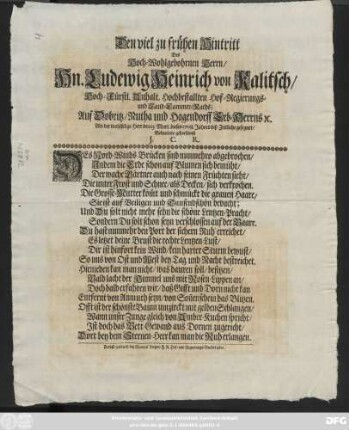 Den viel zu frühen Hintritt
Des
Hoch-Wohlgebohrnen Herrn/
Hn. Ludewig Heinrich von Kalitsch/
Hoch-Fürstl. Anhalt. Hochbestallten Hof-Regierungs-
und Land-Cammer-Raths/
Auf Dobritz/ Nutha und Hagendorff Erb-Herrns &c.
J. C. R.
DEs Nord-Winds Brücken sind nunmehro abgebrochen/
Indem die Erde schon auf Blumen sich bemüht/
Der wache Gärtner auch nach seinen Früchten sieht/
Die unter Frost und Schnee/ als Decken/ sich verkrochen.
Die Grosse-Mutter köllt und schmückt die grauen Haare/
Sie ist auf Veiligen und Tausendschön bedacht:
Und Du solt nicht mehr sehn die schöne Lentzen-Pracht/
Sondern Du solt schon seyn verschlossen auf der Baare.
Du hast nunmehr den Port der sichern Ruh erreichet/
Es letzt deine Brust die rechte Lentzen Lust/
Dir ist hinfort kein Wind/ kein harter Sturm bewust/
So uns von Ost und West bey Tag und Nacht bestreichet.
Hienieden kan man nicht/ was dauren soll/ besitzen/
Bald lacht der Himmel uns mit Rosen Lippen an/
Doch bald erfahren wir/ daß Gifft und Dorn nicht kan
Entfernt von Anmuth seyn/ von Sonnenschein das Blitzen.
Offt ist der schönste Baum umzirckt mit gelben Schlangen/
Wann unser Zunge gleich von Zucker-Kuchen spricht/
Ist doch das Bett-Gewand aus Dornen zugericht/
Dort bey dem Sternen-Heer kan man die Ruh erlangen.